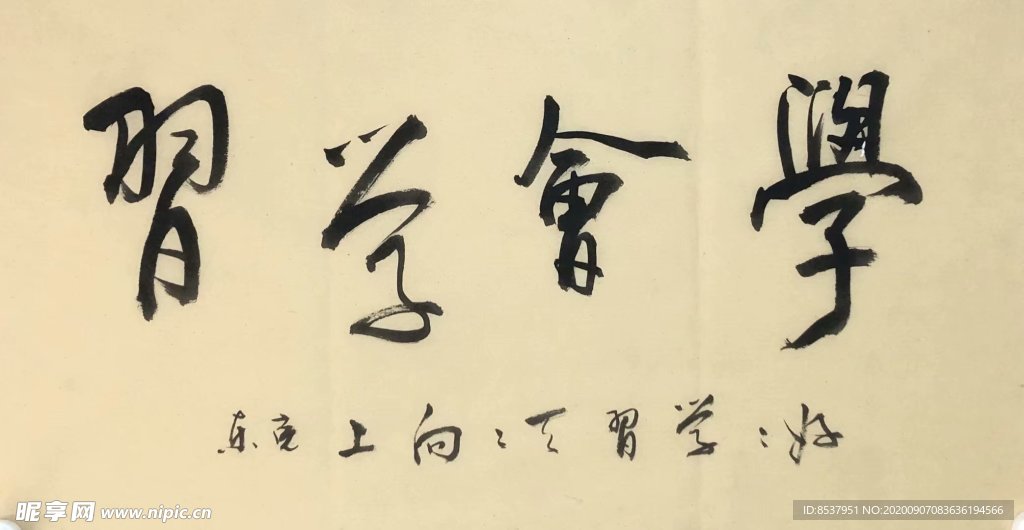 學會学習
好〻学習天〻向上
昵享网 www.nipic.cn
ID:8537951 NO:20200907083636194566